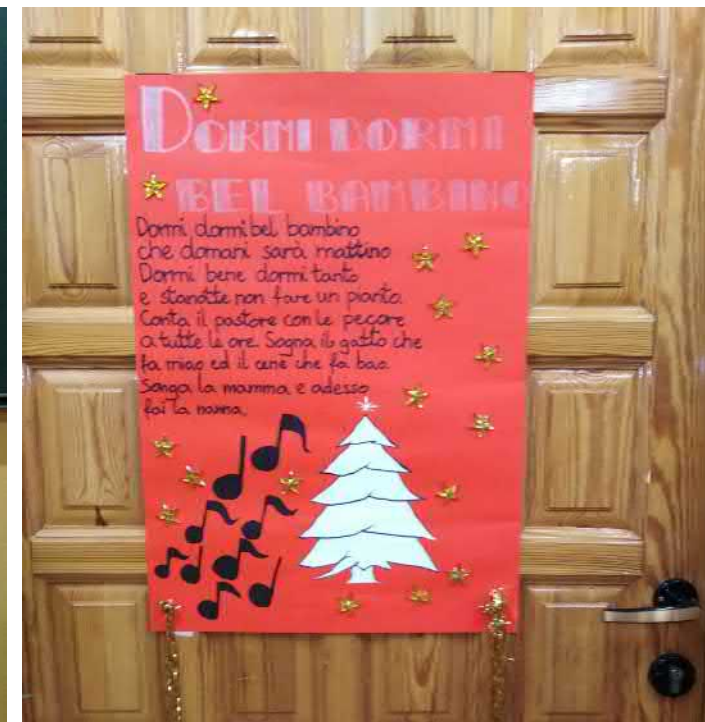 DORMI DORMI
BEL BAMBINO
Dormi dormi bel bambino
che domani sarà mattino
Dormi bene dormi tanto
e stanotte non fare un pianto.
Conta il pastore con le pecore
a tutte le ore. Sogna il gatto che
fa miao ed il cane che fa bao.
Songa la mamma e adesso
fai la nanna.